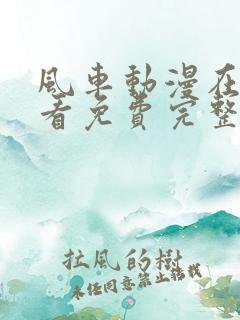 風車動漫在
看免費完整
拉風的樹
未經同意禁止轉載